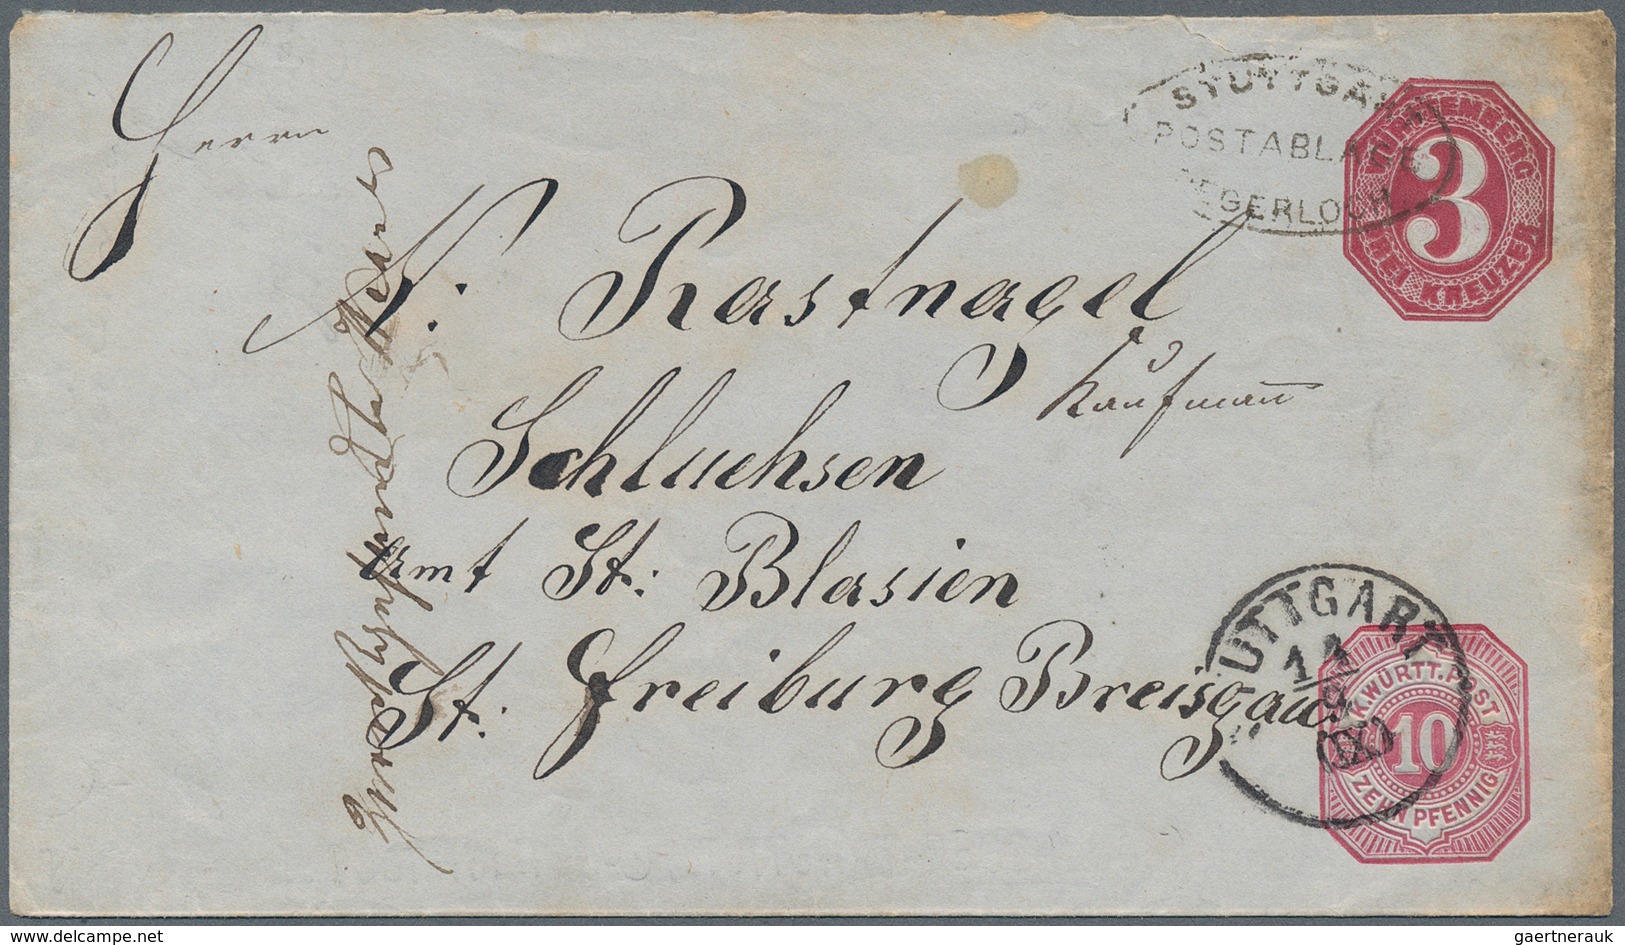 STUTTGART
POSTABLAGE
DEGERLOCH
WÜRTTEMBERG
3
DREI KREUZER
Herrn
N. Rastnagel
Kaufmann
Schluchsen
Amt St. Blasien
St. Freiburg Breisgau
STUTTGART
14
9
(IX)
K. WÜRTT. POST
10
ZEHN PFENNIG
www.delcampe.net
gaertnerauk